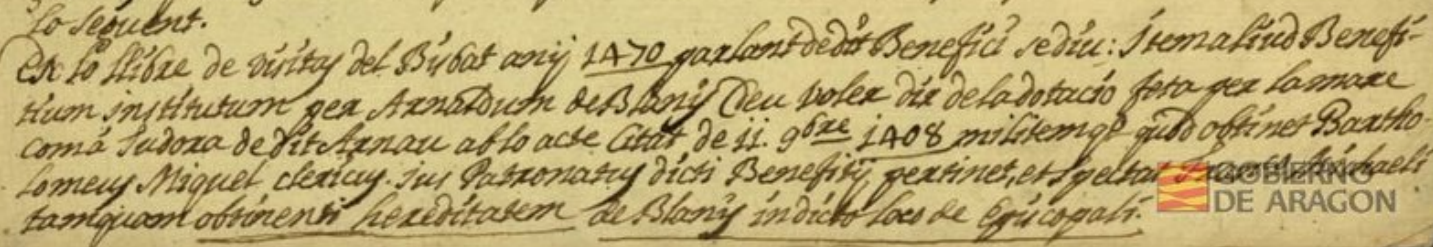 lo seguent.
En lo llibre de visitas del Bisbat anij 1470 parlant de dit Benefici se diu: Item aliud Benefi-
tium institutum per Arnaldum de Blanij (Deu voler dir de la dotacio feta per la mare
com á tudora de dit Arnau ab lo acte citat de 11. 9bre 1408 militem qe quod obtinet Bartho-
lomeus Miquel clericus. jus Patronatus dicti Benefitij pertinet, et spectat
tamquam obtinenti hereditatem de Blanij in dicto loco de Episcopali.
GOBIERNO
DE ARAGON